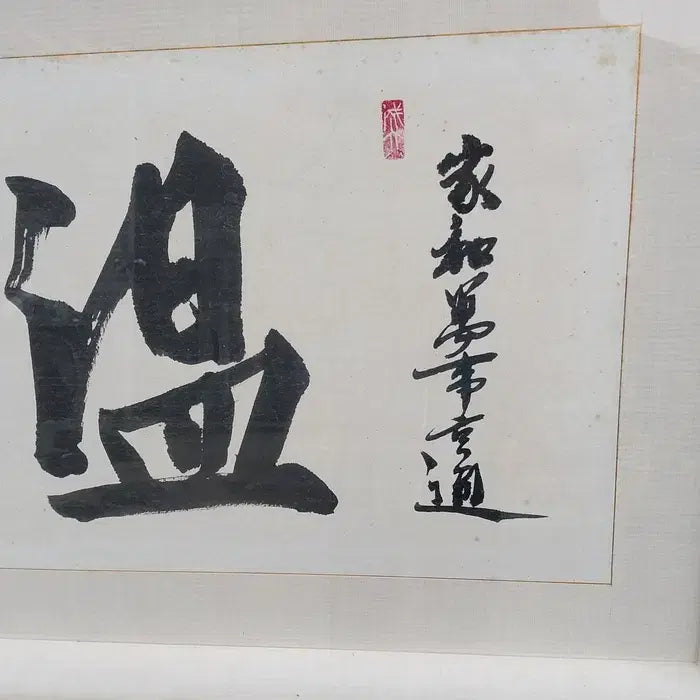 家和萬事亨通
温